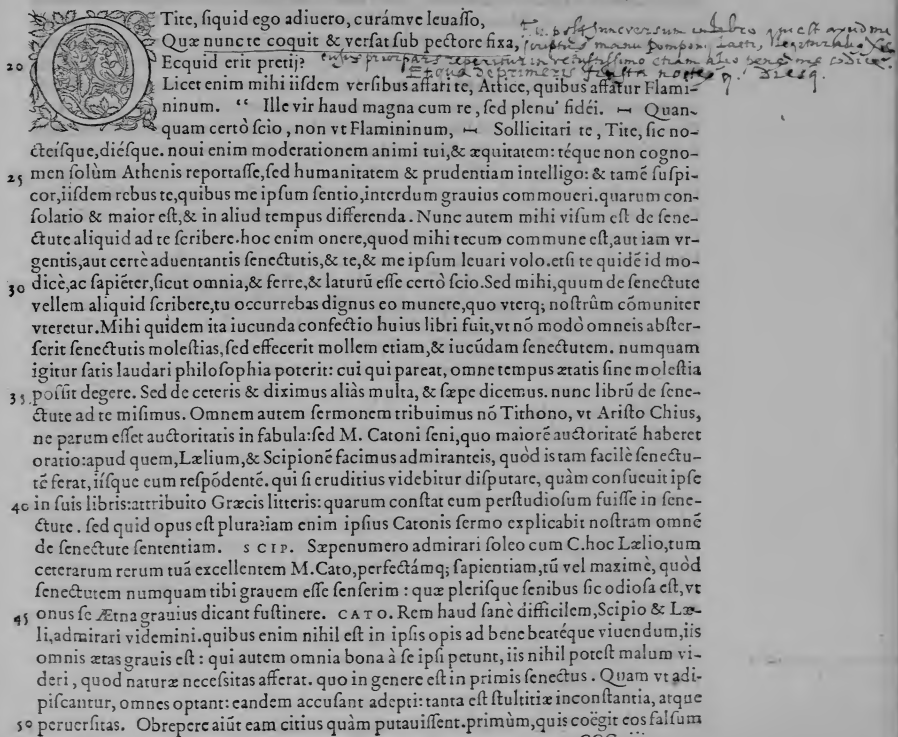 O Tite, ſiquid ego adiuero, curámve leuaſſo,
Quæ nunc te coquit & verſat ſub pectore fixa,
20 Ecquid erit pretij?
Licet enim mihi iiſdem verſibus affari te, Attice, quibus affatur Flami-
ninum. “ Ille vir haud magna cum re, ſed plenu' fidéi. ⟝ Quan-
quam certò ſcio, non vt Flamininum, ⟝ Sollicitari te, Tite, ſic no-
cteiſque, diéſque. noui enim moderationem animi tui, & æquitatem: téque non cogno-
25 men ſolùm Athenis reportaſſe, ſed humanitatem & prudentiam intelligo: & tamē ſuſpi-
cor, iiſdem rebus te, quibus me ipſum ſentio, interdum grauius commoueri. quarum con-
ſolatio & maior eſt, & in aliud tempus differenda. Nunc autem mihi viſum eſt de ſene-
ctute aliquid ad te ſcribere. hoc enim onere, quod mihi tecum commune eſt, aut iam vr-
gentis, aut certè aduentantis ſenectutis, & te, & me ipſum leuari volo. etſi te quidē id mo-
30 dicè, ac ſapiēter, ſicut omnia, & ferre, & laturū eſſe certò ſcio. Sed mihi, quum de ſenectute
vellem aliquid ſcribere, tu occurrebas dignus eo munere, quo vterq; noſtrûm cōmuniter
vteretur. Mihi quidem ita iucunda confectio huius libri fuit, vt nō modò omneis abſter-
ſerit ſenectutis moleſtias, ſed effecerit mollem etiam, & iucūdam ſenectutem. numquam
igitur ſatis laudari philoſophia poterit: cui qui pareat, omne tempus ætatis ſine moleſtia
35 poſſit degere. Sed de ceteris & diximus aliàs multa, & ſæpe dicemus. nunc librū de ſene-
ctute ad te miſimus. Omnem autem ſermonem tribuimus nō Tithono, vt Ariſto Chius,
ne parum eſſet auctoritatis in fabula: ſed M. Catoni ſeni, quo maiorē auctoritatē haberet
oratio: apud quem, Lælium, & Scipionē facimus admiranteis, quòd is tam facilè ſenectu-
tē ferat, iiſque eum reſpōdentē. qui ſi eruditius videbitur diſputare, quàm conſueuit ipſe
40 in ſuis libris: attribuito Græcis litteris: quarum conſtat eum perſtudioſum fuiſſe in ſene-
ctute. ſed quid opus eſt plura? iam enim ipſius Catonis ſermo explicabit noſtram omnē
de ſenectute ſententiam. SCIP. Sæpenumero admirari ſoleo cum C. hoc Lælio, tum
ceterarum rerum tuā excellentem M. Cato, perfectámq; ſapientiam, tū vel maximè, quòd
ſenectutem numquam tibi grauem eſſe ſenſerim: quæ pleriſque ſenibus ſic odioſa eſt, vt
45 onus ſe Ætna grauius dicant ſuſtinere. CATO. Rem haud ſanè difficilem, Scipio & Læ-
li, admirari videmini. quibus enim nihil eſt in ipſis opis ad bene beatéque viuendum, iis
omnis ætas grauis eſt: qui autem omnia bona à ſe ipſi petunt, iis nihil poteſt malum vi-
deri, quod naturæ neceſsitas afferat. quo in genere eſt in primis ſenectus. Quam vt adi-
piſcantur, omnes optant: eandem accuſant adepti: tanta eſt ſtultitiæ inconſtantia, atque
50 peruerſitas. Obrepere aiūt eam citius quàm putauiſſent. primùm, quis coëgit eos falſum